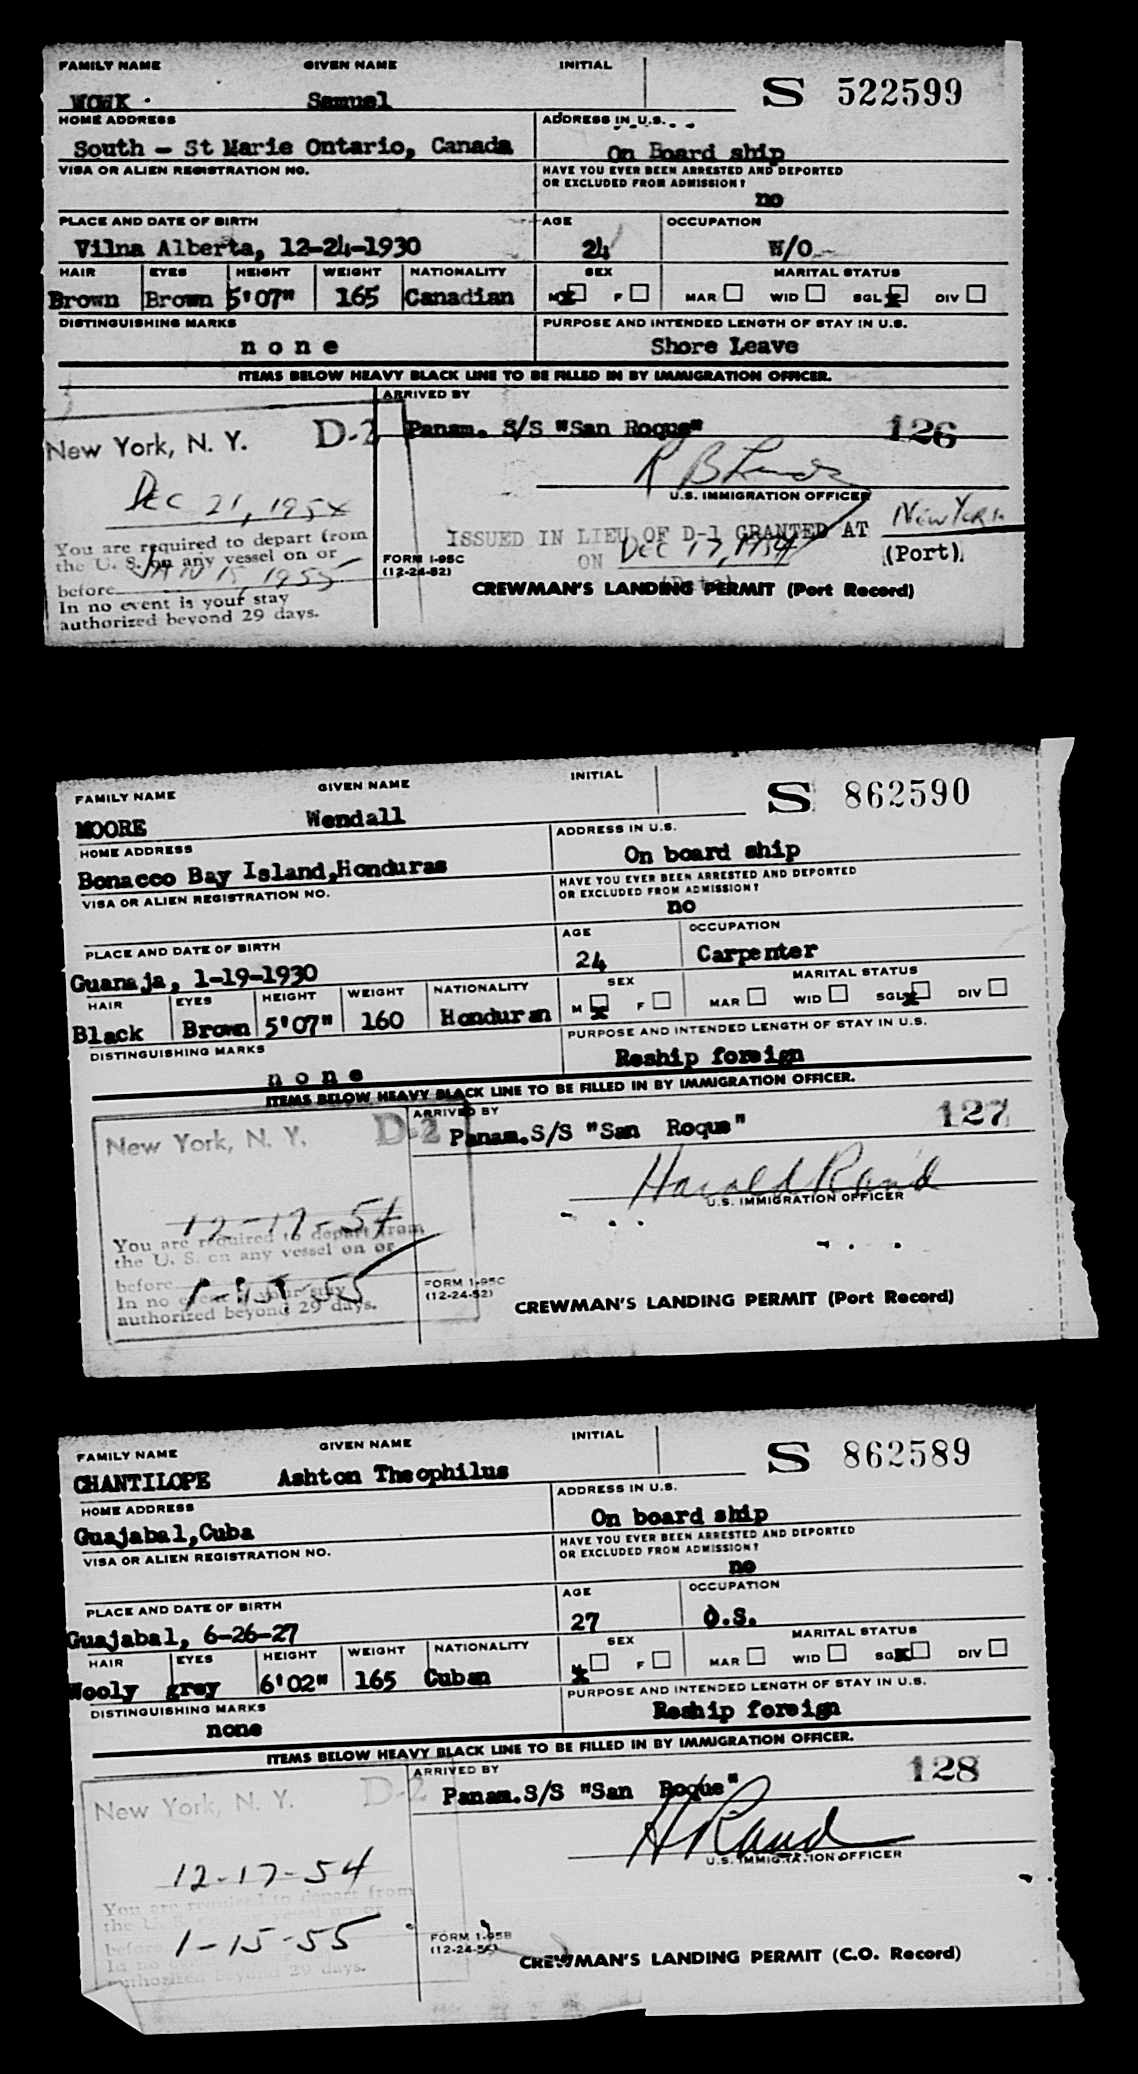 FAMILY NAME GIVEN NAME INITIAL S 522599
WOWK Samuel
HOME ADDRESS ADDRESS IN U.S.
South - St Marie Ontario, Canada On Board ship
VISA OR ALIEN REGISTRATION NO. HAVE YOU EVER BEEN ARRESTED AND DEPORTED
OR EXCLUDED FROM ADMISSION?
no
PLACE AND DATE OF BIRTH AGE OCCUPATION
Vilna Alberta, 12-24-1930 24 W/O
HAIR EYES HEIGHT WEIGHT NATIONALITY SEX MARITAL STATUS
Brown Brown 5'07" 165 Canadian M x F MAR WID SGL x DIV
DISTINGUISHING MARKS PURPOSE AND INTENDED LENGTH OF STAY IN U.S.
n o n e Shore Leave
ITEMS BELOW HEAVY BLACK LINE TO BE FILLED IN BY IMMIGRATION OFFICER.
ARRIVED BY
New York, N. Y. D-2 Panam. S/S "San Roque" 126
Dec 21, 1954
U.S. IMMIGRATION OFFICER
ISSUED IN LIEU OF D-1 GRANTED AT New York
ON Dec 17, 1954 (Port)
(Date)
You are required to depart from
the U. S. on any vessel on or
before Jan 15, 1955
In no event is your stay
authorized beyond 29 days.
FORM I-95C
(12-24-52)
CREWMAN'S LANDING PERMIT (Port Record)
FAMILY NAME GIVEN NAME INITIAL S 862590
MOORE Wendall
HOME ADDRESS ADDRESS IN U.S.
Bonacco Bay Island,Honduras On board ship
VISA OR ALIEN REGISTRATION NO. HAVE YOU EVER BEEN ARRESTED AND DEPORTED
OR EXCLUDED FROM ADMISSION?
no
PLACE AND DATE OF BIRTH AGE OCCUPATION
Guanaja, 1-19-1930 24 Carpenter
HAIR EYES HEIGHT WEIGHT NATIONALITY SEX MARITAL STATUS
Black Brown 5'07" 160 Honduran M x F MAR WID SGL x DIV
DISTINGUISHING MARKS PURPOSE AND INTENDED LENGTH OF STAY IN U.S.
n o n e Reship foreign
ITEMS BELOW HEAVY BLACK LINE TO BE FILLED IN BY IMMIGRATION OFFICER.
ARRIVED BY
New York, N. Y. D-2 Panam.S/S "San Roque" 127
Harold Rand
U.S. IMMIGRATION OFFICER
12-17-54
You are required to depart from
the U. S. on any vessel on or
before 1-15-55
In no event is your stay
authorized beyond 29 days.
FORM I-95C
(12-24-52)
CREWMAN'S LANDING PERMIT (Port Record)
FAMILY NAME GIVEN NAME INITIAL S 862589
CHANTILOPE Ashton Theophilus
HOME ADDRESS ADDRESS IN U.S.
Guajabal,Cuba On board ship
VISA OR ALIEN REGISTRATION NO. HAVE YOU EVER BEEN ARRESTED AND DEPORTED
OR EXCLUDED FROM ADMISSION?
no
PLACE AND DATE OF BIRTH AGE OCCUPATION
Guajabal, 6-26-27 27 O.S.
HAIR EYES HEIGHT WEIGHT NATIONALITY SEX MARITAL STATUS
Wooly grey 6'02" 165 Cuban M x F MAR WID SGL x DIV
DISTINGUISHING MARKS PURPOSE AND INTENDED LENGTH OF STAY IN U.S.
none Reship foreign
ITEMS BELOW HEAVY BLACK LINE TO BE FILLED IN BY IMMIGRATION OFFICER.
ARRIVED BY
New York, N. Y. D-2 Panam.S/S "San Roque" 128
H Rand
U.S. IMMIGRATION OFFICER
12-17-54
You are required to depart from
the U. S. on any vessel on or
before 1-15-55
In no
authorized beyond 29 days.
FORM I-95B
(12-24-52)
CREWMAN'S LANDING PERMIT (C.O. Record)